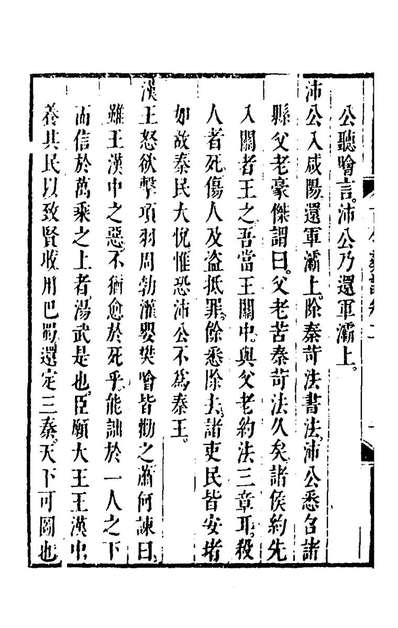 公聽噲言。沛公乃還軍灞上。
沛公入咸陽還軍灞上。除秦苛法書法。沛公悉召諸
縣父老豪傑謂曰。父老苦秦苛法久矣。諸侯約先
入關者王之吾當王關中。與父老約法三章耳。殺
人者死傷人及盜抵罪。餘悉除去。諸吏民皆安堵
如故秦民大悅惟恐沛公不爲秦王。
漢王怒欲擊項羽周勃灌嬰樊噲皆勸之蕭何諫曰。
雖王漢中之惡。不猶愈於死乎。能詘於一人之下
而信於萬乘之上者。湯武是也。臣願大王王漢中。
養其民以致賢收用巴蜀還定三秦。天下可圖也